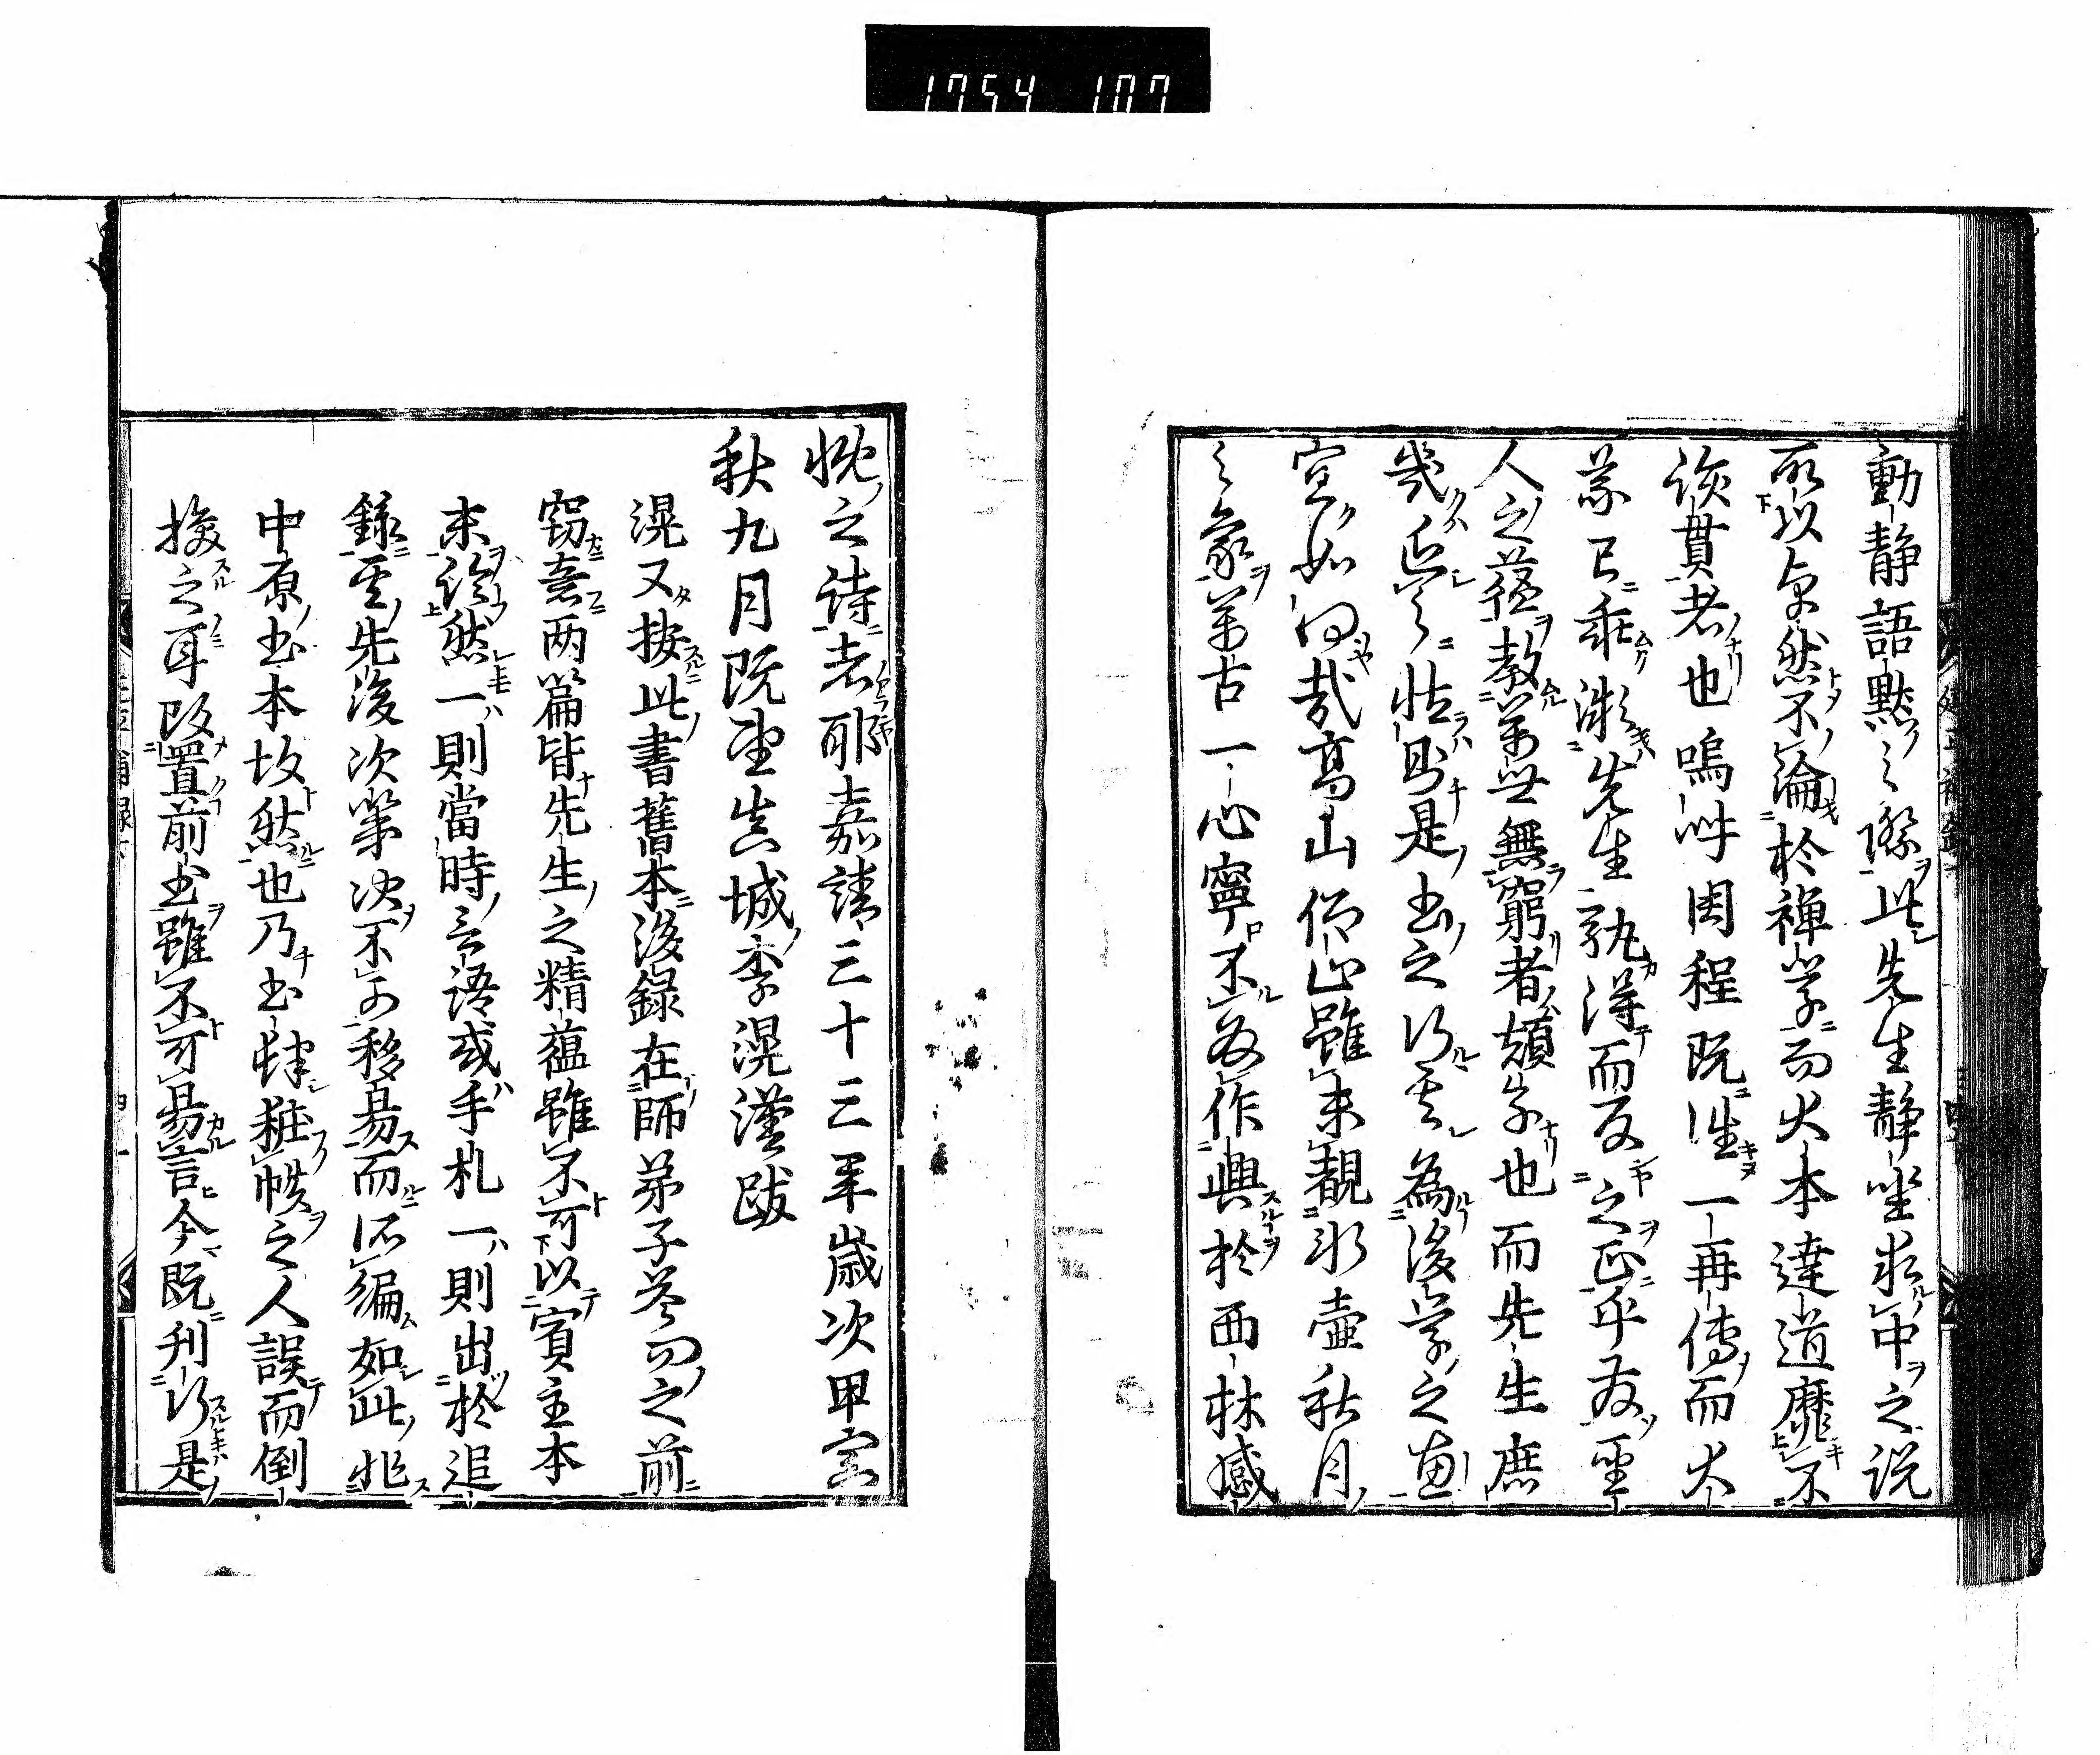 1754 107
動静語黙之際此先生静坐求中之説
所以卓然不淪於禅学而大本達道靡不
該貫者也嗚呼周程既往一再傳而大
義已乖微先生孰得而反之正乎發聖
人之蘊教萬世無窮者顔子也而先生庶
幾近之然則是書之行其為後学之惠
宜如何哉高山仰止雖未覩氷壺秋月
之象萬古一心寧不為作興於西林感
慨之詩者耶嘉靖三十三年歲次甲寅
秋九月既望真城李滉謹跋
滉又按此書舊本後録在師弟子答問之前
竊意两篇皆先生之精蘊雖不可以賓主本
末論然一則當時言語或手札一則出於追
録其先後次第决不可移易而所編如此非
中原書本故然也乃書肆粧帙之人誤而倒
換之耳改置前書雖不可易言今既刊行是